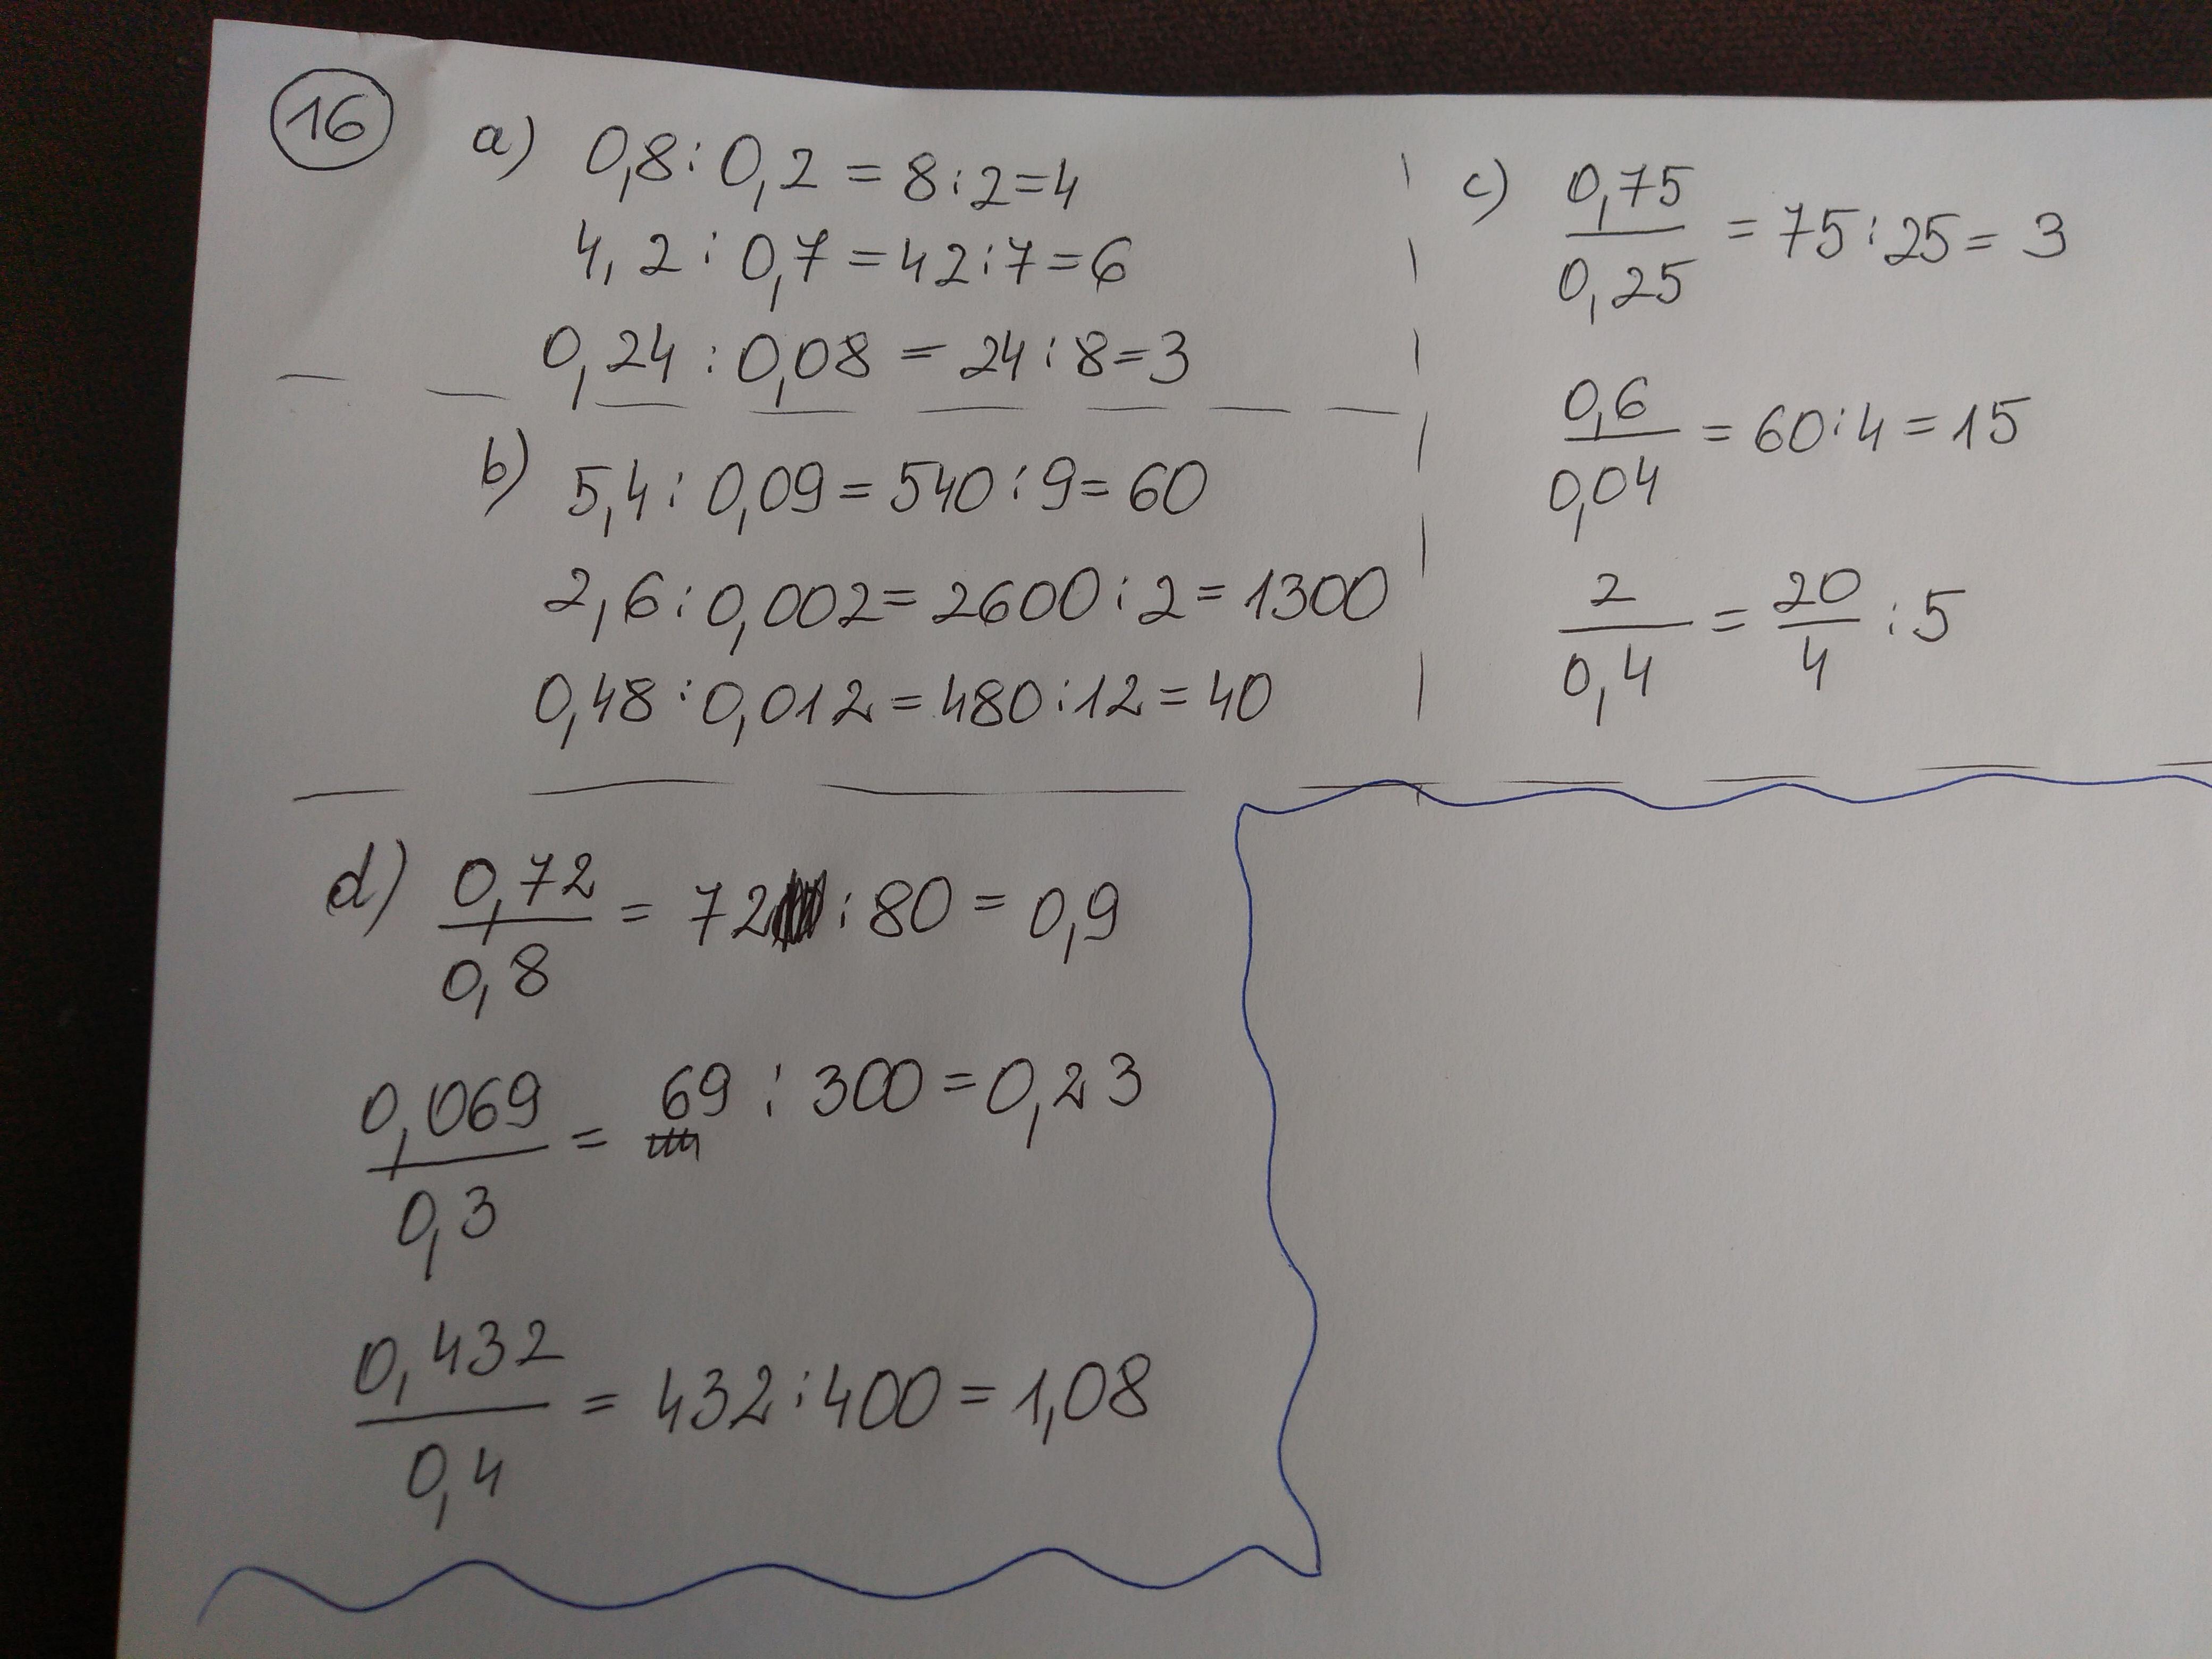 16
a) 0,8 : 0,2 = 8 : 2 = 4
4,2 : 0,7 = 42 : 7 = 6
0,24 : 0,08 = 24 : 8 = 3
b) 5,4 : 0,09 = 540 : 9 = 60
2,6 : 0,002 = 2600 : 2 = 1300
0,48 : 0,012 = 480 : 12 = 40
c) 0,75/0,25 = 75 : 25 = 3
0,6/0,04 = 60 : 4 = 15
2/0,4 = 20/4 : 5
d) 0,72/0,8 = 72 : 80 = 0,9
0,069/0,3 = 69 : 300 = 0,23
0,432/0,4 = 432 : 400 = 1,08